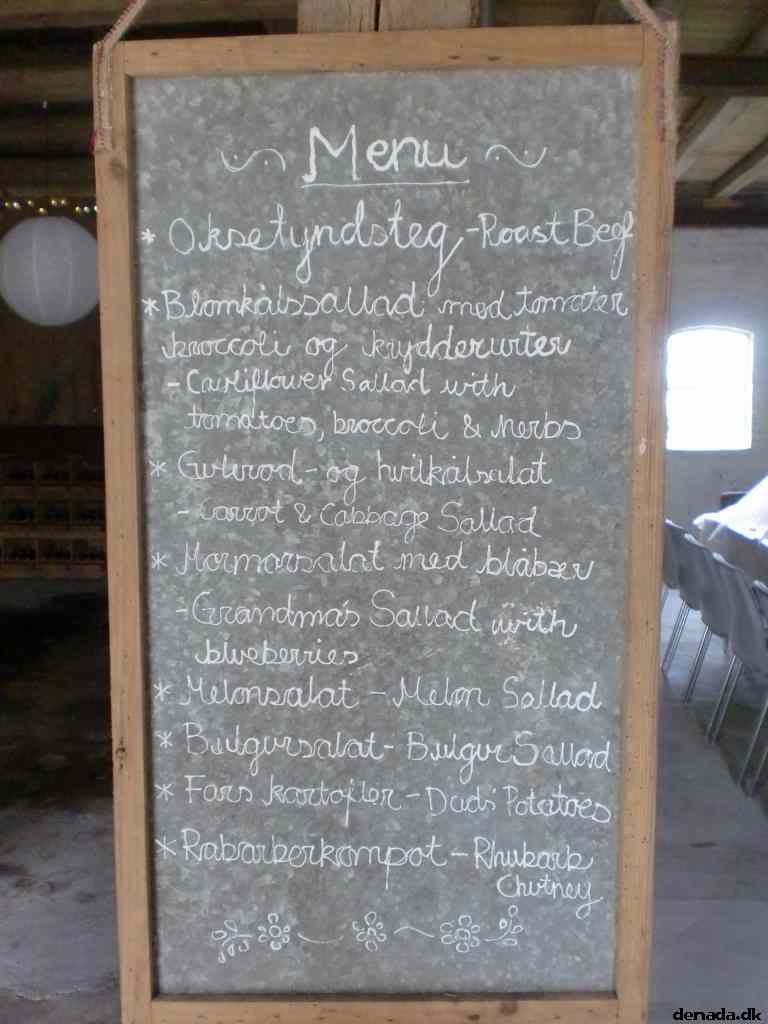 Menu
* Oksetyndsteg - Roast Beef
* Blomkålssallad med tomater
broccoli og krydderurter
- Cauliflower Sallad with
tomatoes, broccoli & Herbs
* Gulerod - og hvilkålsalat
- Carrot & Cabbage Sallad
* Mormorsalat med blåbær
- Grandma's Sallad with
blueberries
* Melonsalat - Melon Sallad
* Bulgursalat - Bulgur Sallad
* Fars kartofler - Dads' Potatoes
* Rabarberkompot - Rhubarb
Chutney
denada.dk